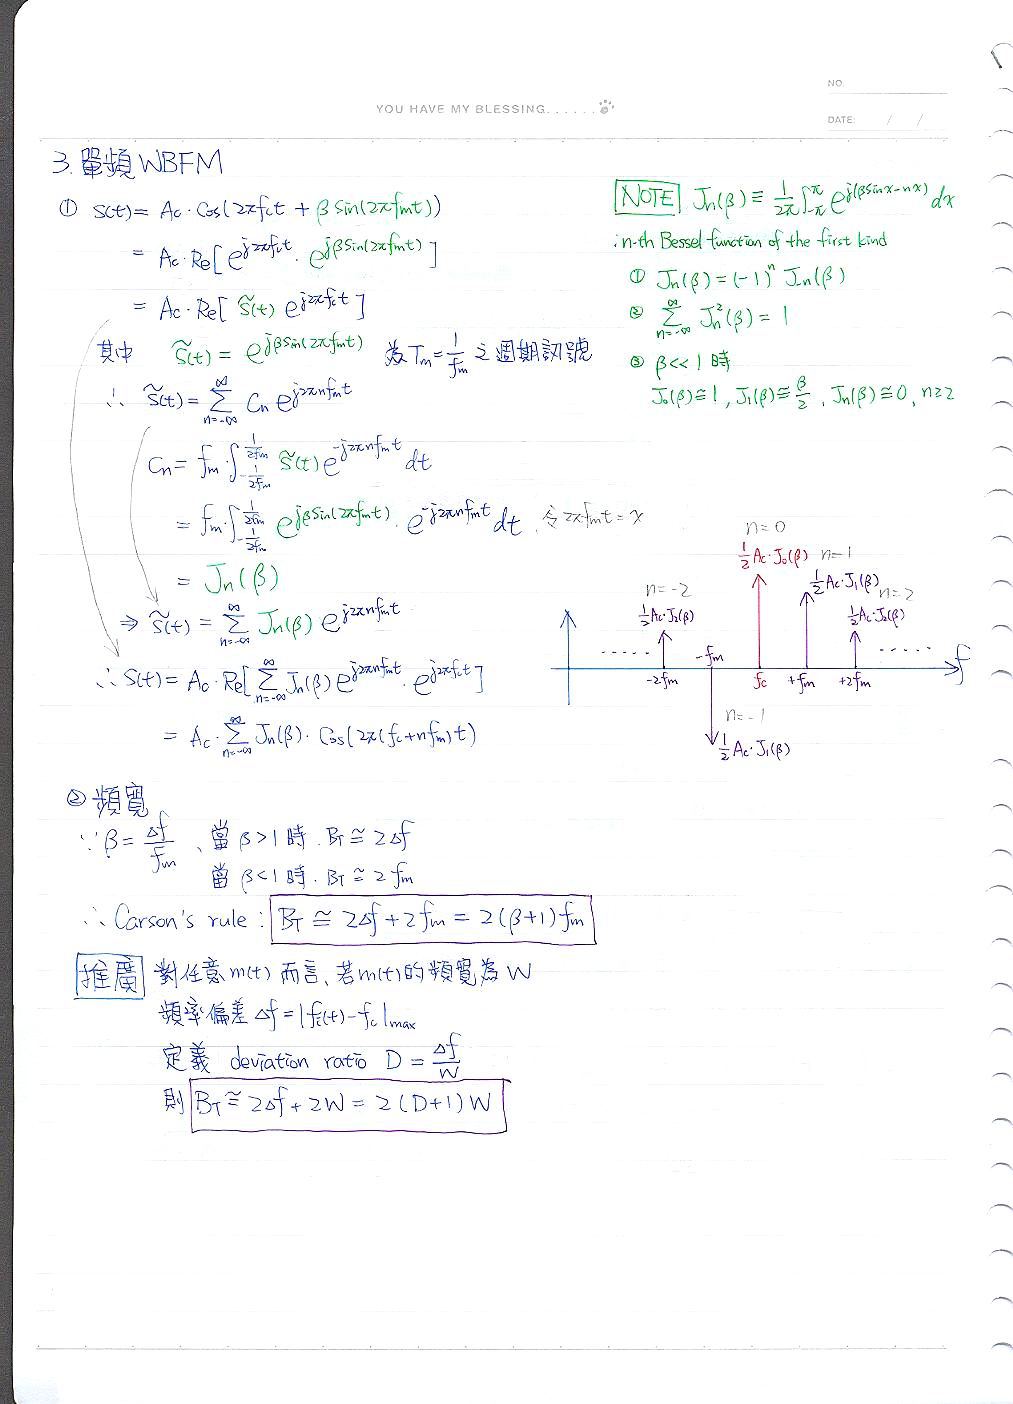 NO.
YOU HAVE MY BLESSING......
DATE: / /
3. 單頻 WBFM
① S(t) = Ac·Cos(2πfct + βSin(2πfmt))
= Ac·Re[e^{j2πfct}·e^{jβSin(2πfmt)}]
= Ac·Re[S̃(t) e^{j2πfct}]
其中 S̃(t) = e^{jβSin(2πfmt)} 為 Tm = 1/fm 之週期訊號
∴ S̃(t) = Σ_{n=-∞}^{∞} Cn e^{j2πnfmt}
Cn = fm·∫_{-1/2fm}^{1/2fm} S̃(t) e^{-j2πnfmt} dt
= fm·∫_{-1/2fm}^{1/2fm} e^{jβSin(2πfmt)}·e^{-j2πnfmt} dt, 令 2πfmt = x
= Jn(β)
⇒ S̃(t) = Σ_{n=-∞}^{∞} Jn(β) e^{j2πnfmt}
∴ S(t) = Ac·Re[Σ_{n=-∞}^{∞} Jn(β) e^{j2πnfmt}·e^{j2πfct}]
= Ac·Σ_{n=-∞}^{∞} Jn(β)·Cos(2π(fc+nfm)t)
NOTE Jn(β) ≡ 1/2π ∫_{-π}^{π} e^{j(βsinx-nx)} dx
: n-th Bessel function of the first kind
① Jn(β) = (-1)^n J-n(β)
② Σ_{n=-∞}^{∞} Jn²(β) = 1
③ β<<1 時
J0(β)≅1, J1(β)≅β/2, Jn(β)≅0, n≥2
n=0
½Ac·J0(β)
n=1
½Ac·J1(β)
n=2
½Ac·J2(β)
n=-2
½Ac·J2(β)
......
......
f
-2fm
-fm
fc
+fm
+2fm
n=-1
½Ac·J1(β)
② 頻寬
∵ β = Δf/fm、當 β>1 時. BT ≅ 2Δf
當 β<1 時. BT ≅ 2fm
∴ Carson's rule: BT ≅ 2Δf + 2fm = 2(β+1)fm
推廣 對任意 m(t) 而言、若 m(t) 的頻寬為 W
頻率偏差 Δf = |fi(t) - fc|max
定義 deviation ratio D = Δf/W
則 BT ≅ 2Δf + 2W = 2(D+1)W